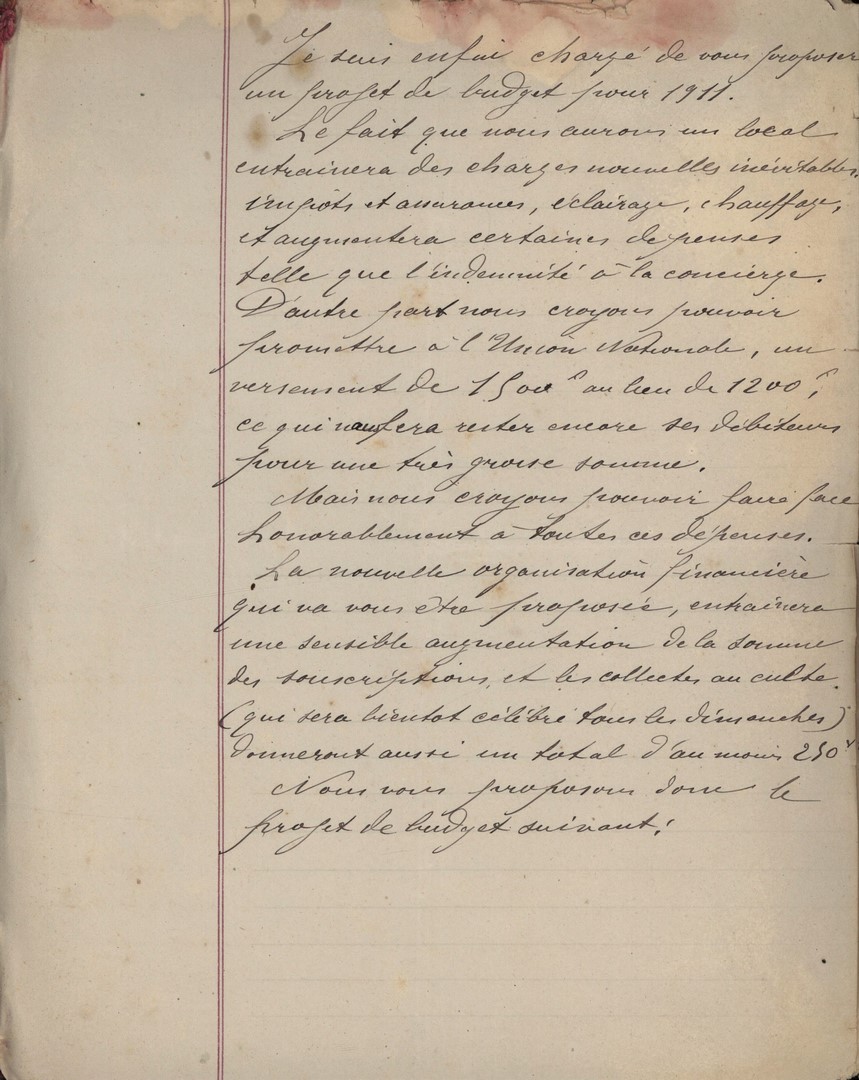 Je suis enfin chargé de vous proposer
un projet de budget pour 1911.
Le fait que nous aurons un local
entrainera des charges nouvelles inévitables,
impôts et assurances, éclairage, chauffage,
et augmentera certaines dépenses
telle que l'indemnité à la concierge.
D'autre part nous croyons pouvoir
promettre à l'Union Nationale, un
versement de 1500f au lieu de 1200f,
ce qui nous fera rester encore ses débiteurs
pour une très grosse somme.
Mais nous croyons pouvoir faire face
honorablement à toutes ces dépenses.
La nouvelle organisation financière
qui va vous être proposée, entrainera
une sensible augmentation de la somme
des souscriptions, et les collectes au culte
(qui sera bientot célébré tous les dimanches)
donneront aussi un total d'au moins 250f
Nous vous proposons donc le
projet de budget suivant: